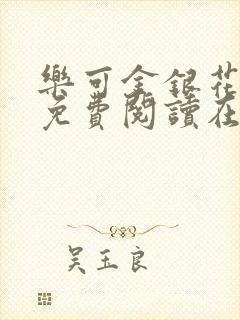 樂可金銀花
免費閱讀在
吳玉良